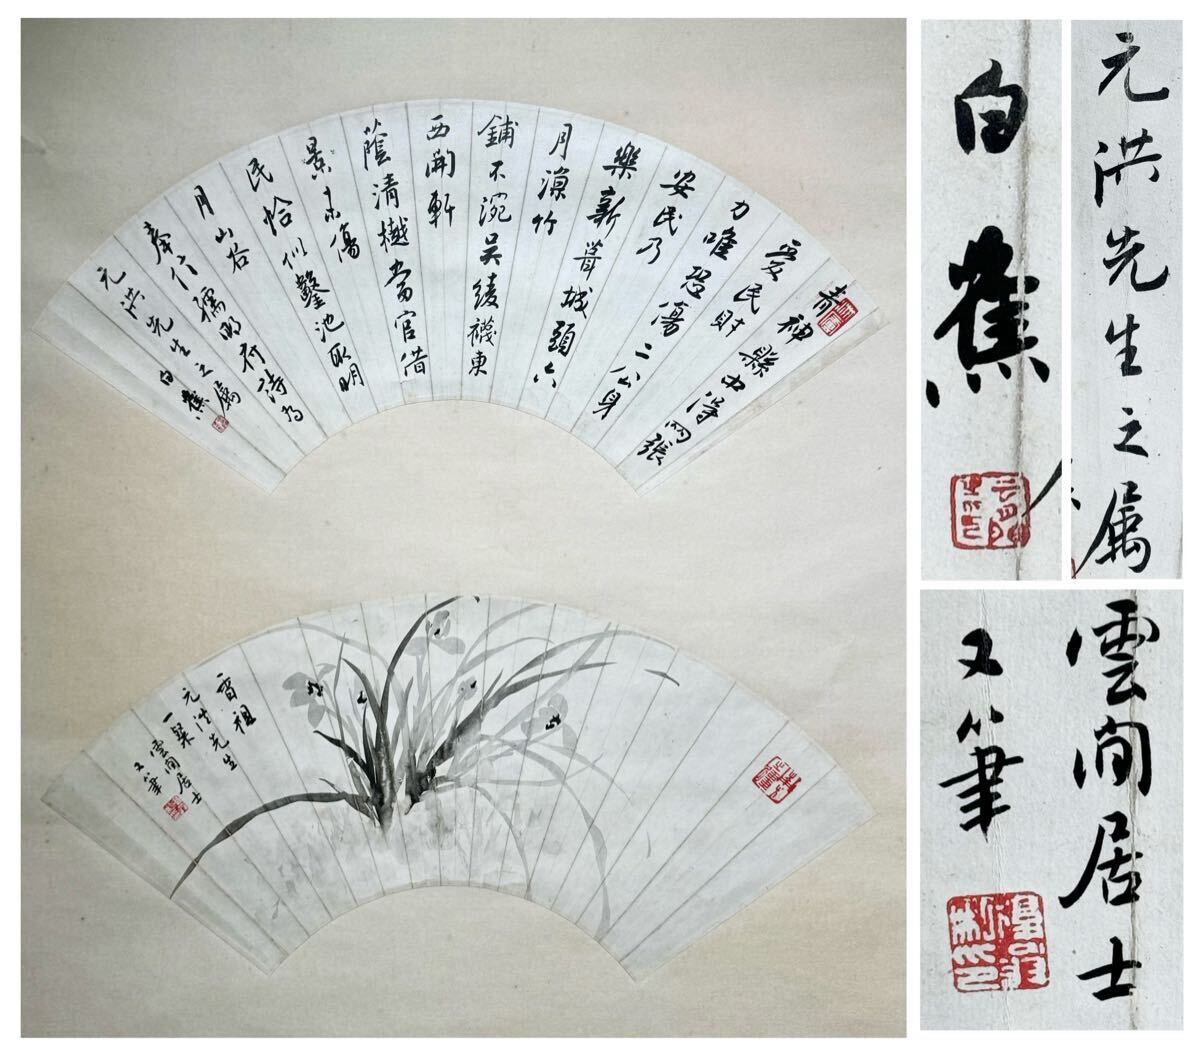 青
神縣中得兩張
愛民財
力唯恐傷二公身
安民乃
樂新葺城頭六
月涼竹
鋪不涴吳綾襪東
西開軒
蔭清樾當官借
景未傷
民恰似鑿池取明
月山谷
奉信孺明府詩為
元洪先生之屬
白蕉
香祖
元洪先生
一粲
雲間居士
又筆
白蕉
元洪先生之屬
雲間居士
又筆